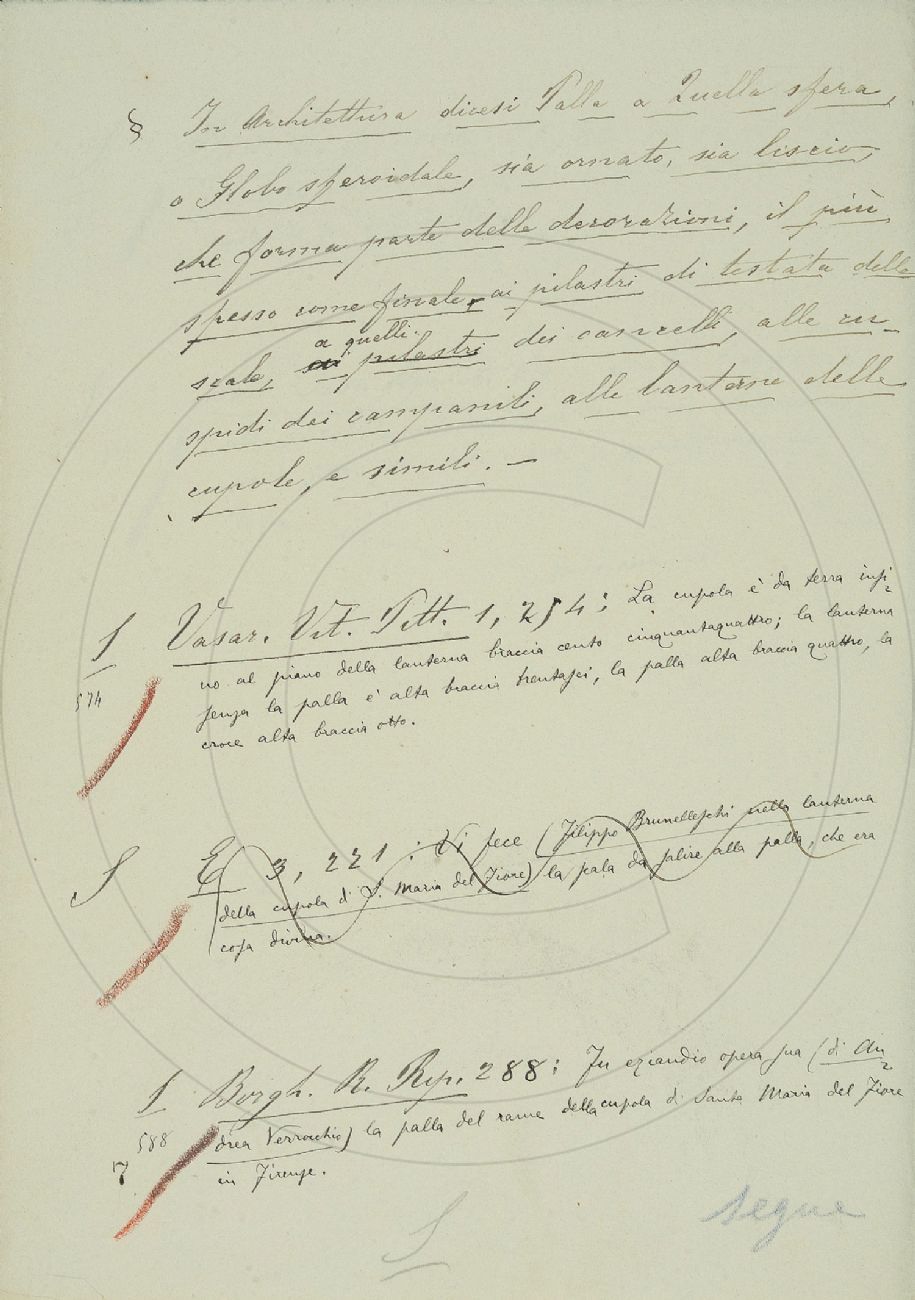 § In Architettura dicesi Palla a Quella sfera,
o Globo sferoidale, sia ornato, sia liscio,
che forma parte delle decorazioni, il più
spesso come finale, ai pilastri di testata delle
a quelli
scale, ai pilastri dei cancelli, alle cu-
spidi dei campanili, alle lanterne delle
cupole, e simili. —
1 Vasar. Vit. Pitt. 1, 254: La cupola è da terra infi-
574
no al piano della lanterna braccia cento cinquantaquattro; la lanterna
senza la palla è alta braccia trentasei, la palla alta braccia quattro, la
croce alta braccia otto.
S E 3, 221: Vi fece (Filippo Brunelleschi nella lanterna
della cupola di S. Maria del Fiore) la scala da salire alla palla, che era
cosa divina.
1 Borgh. R. Rip. 288: Fu eziandio opera sua (di An-
588
7
drea Verrocchio) la palla del rame della cupola di Santa Maria del Fiore
in Firenze.
S
segue